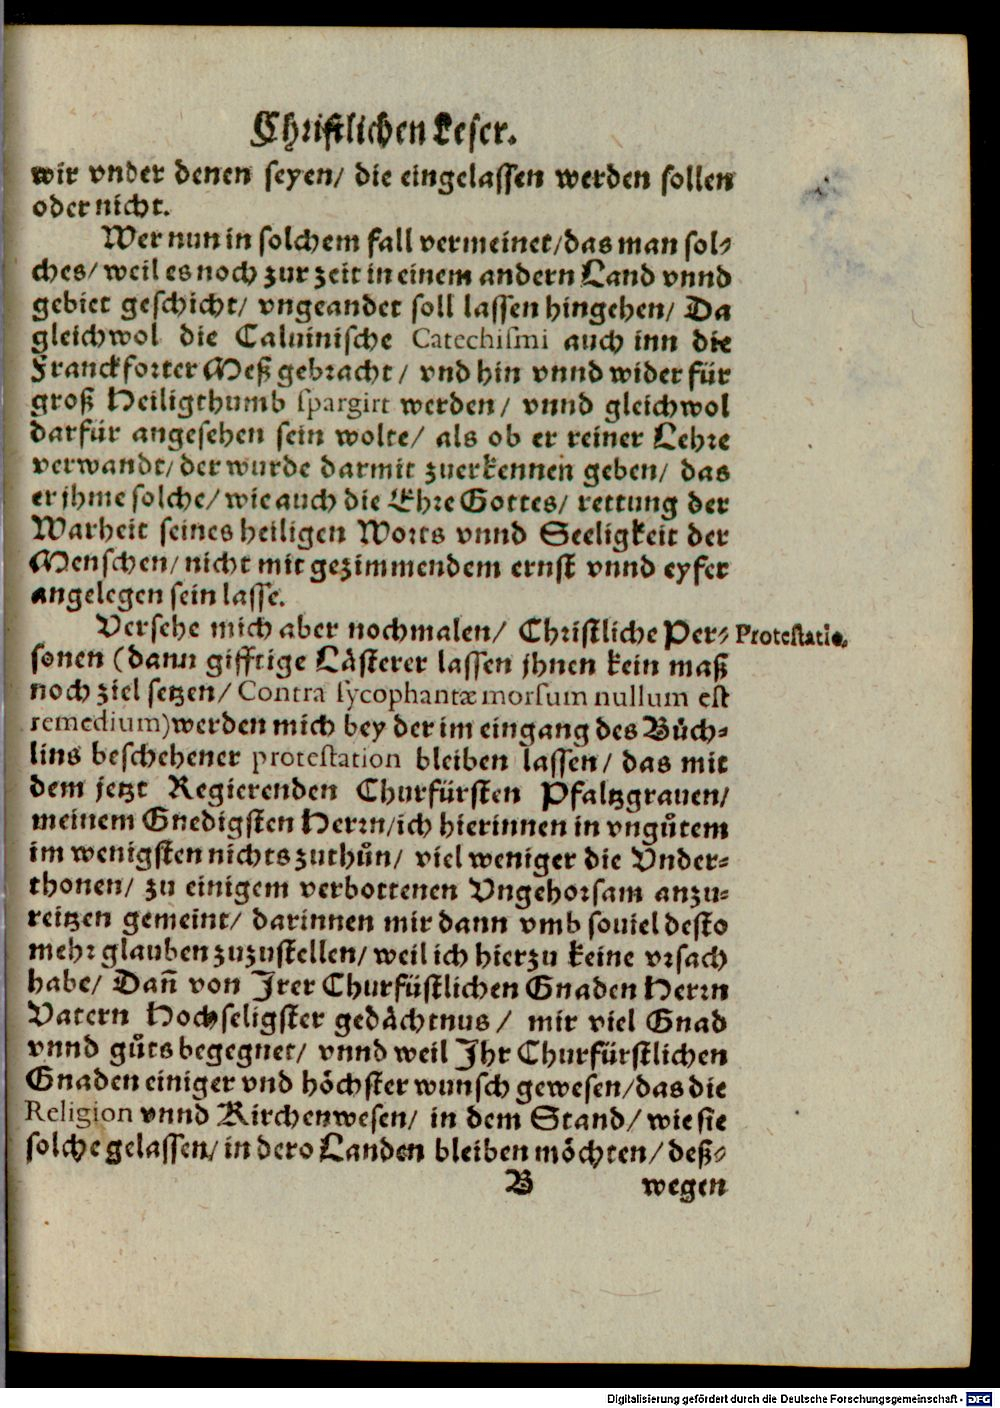 Christlichen Leser.
wir vnder denen seyen/ die eingelassen werden sollen
oder nicht.
Wer nun in solchem fall vermeinet/das man sol-
ches/ weil es noch zur zeit in einem andern Land vnnd
gebiet geschicht/ vngeandet soll lassen hingehen/ Da
gleichwol die Caluinische Catechismi auch inn die
Franckforter Meß gebracht/ vnd hin vnnd wider für
groß Heiligthumb spargirt werden/ vnnd gleichwol
darfür angesehen sein wolte/ als ob er reiner Lehre
verwandt/ der wurde darmit zuerkennen geben/ das
er jhme solche/ wie auch die Ehre Gottes/ rettung der
Warheit seines heiligen Worts vnnd Seeligkeit der
Menschen/ nicht mit gezimmendem ernst vnnd eyfer
angelegen sein lasse.
Versehe mich aber nochmalen/ Christliche Per- Protestatio.
sonen (dann gifftige Lästerer lassen jhnen kein maß
noch ziel setzen/ Contra sycophantæ morsum nullum est
remedium)werden mich bey der im eingang des Büch-
lins beschehener protestation bleiben lassen/ das mit
dem jetzt Regierenden Churfürsten Pfaltzgrauen/
meinem Gnedigsten Herrn/ich hierinnen in vngůtem
im wenigsten nichts zuthůn/ viel weniger die Vnder-
thonen/ zu einigem verbottenen Vngehorsam anzu-
reitzen gemeint/ darinnen mir dann vmb souiel desto
mehr glauben zuzustellen/ weil ich hierzu keine vrsach
habe/ Dañ von Irer Churfüstlichen Gnaden Herrn
Vatern Hochseligster gedächtnus/ mir viel Gnad
vnnd gůts begegnet/ vnnd weil Ihr Churfürstlichen
Gnaden einiger vnd höchster wunsch gewesen/das die
Religion vnnd Kirchenwesen/ in dem Stand/ wie sie
solche gelassen/ in dero Landen bleiben möchten/ deß-
B wegen
Digitalisierung gefördert durch die Deutsche Forschungsgemeinschaft - DFG